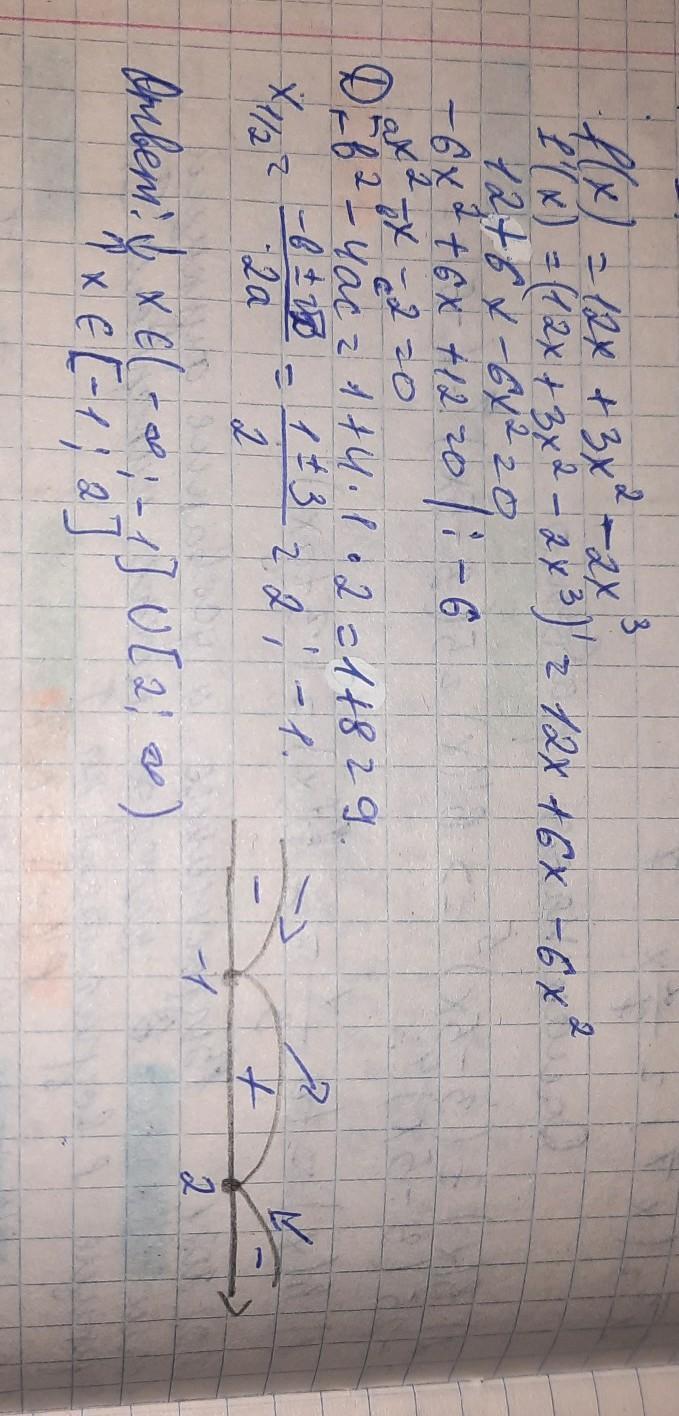 f(x) = 12x + 3x² - 2x³
f'(x) = (12x + 3x² - 2x³)' = 12x + 6x - 6x²
12 + 6x - 6x² = 0
-6x² + 6x + 12 = 0 | : -6
ax² - x - 2 = 0
D = b² - 4ac = 1 + 4 · 1 · 2 = 1 + 8 = 9.
x1/2 = (-b ± √D)/2a = (1 ± 3)/2 = 2; -1.
- + -
-1 2
Ответ: ↓ x ∈ (-∞; -1] ∪ [2; ∞)
↑ x ∈ [-1; 2]